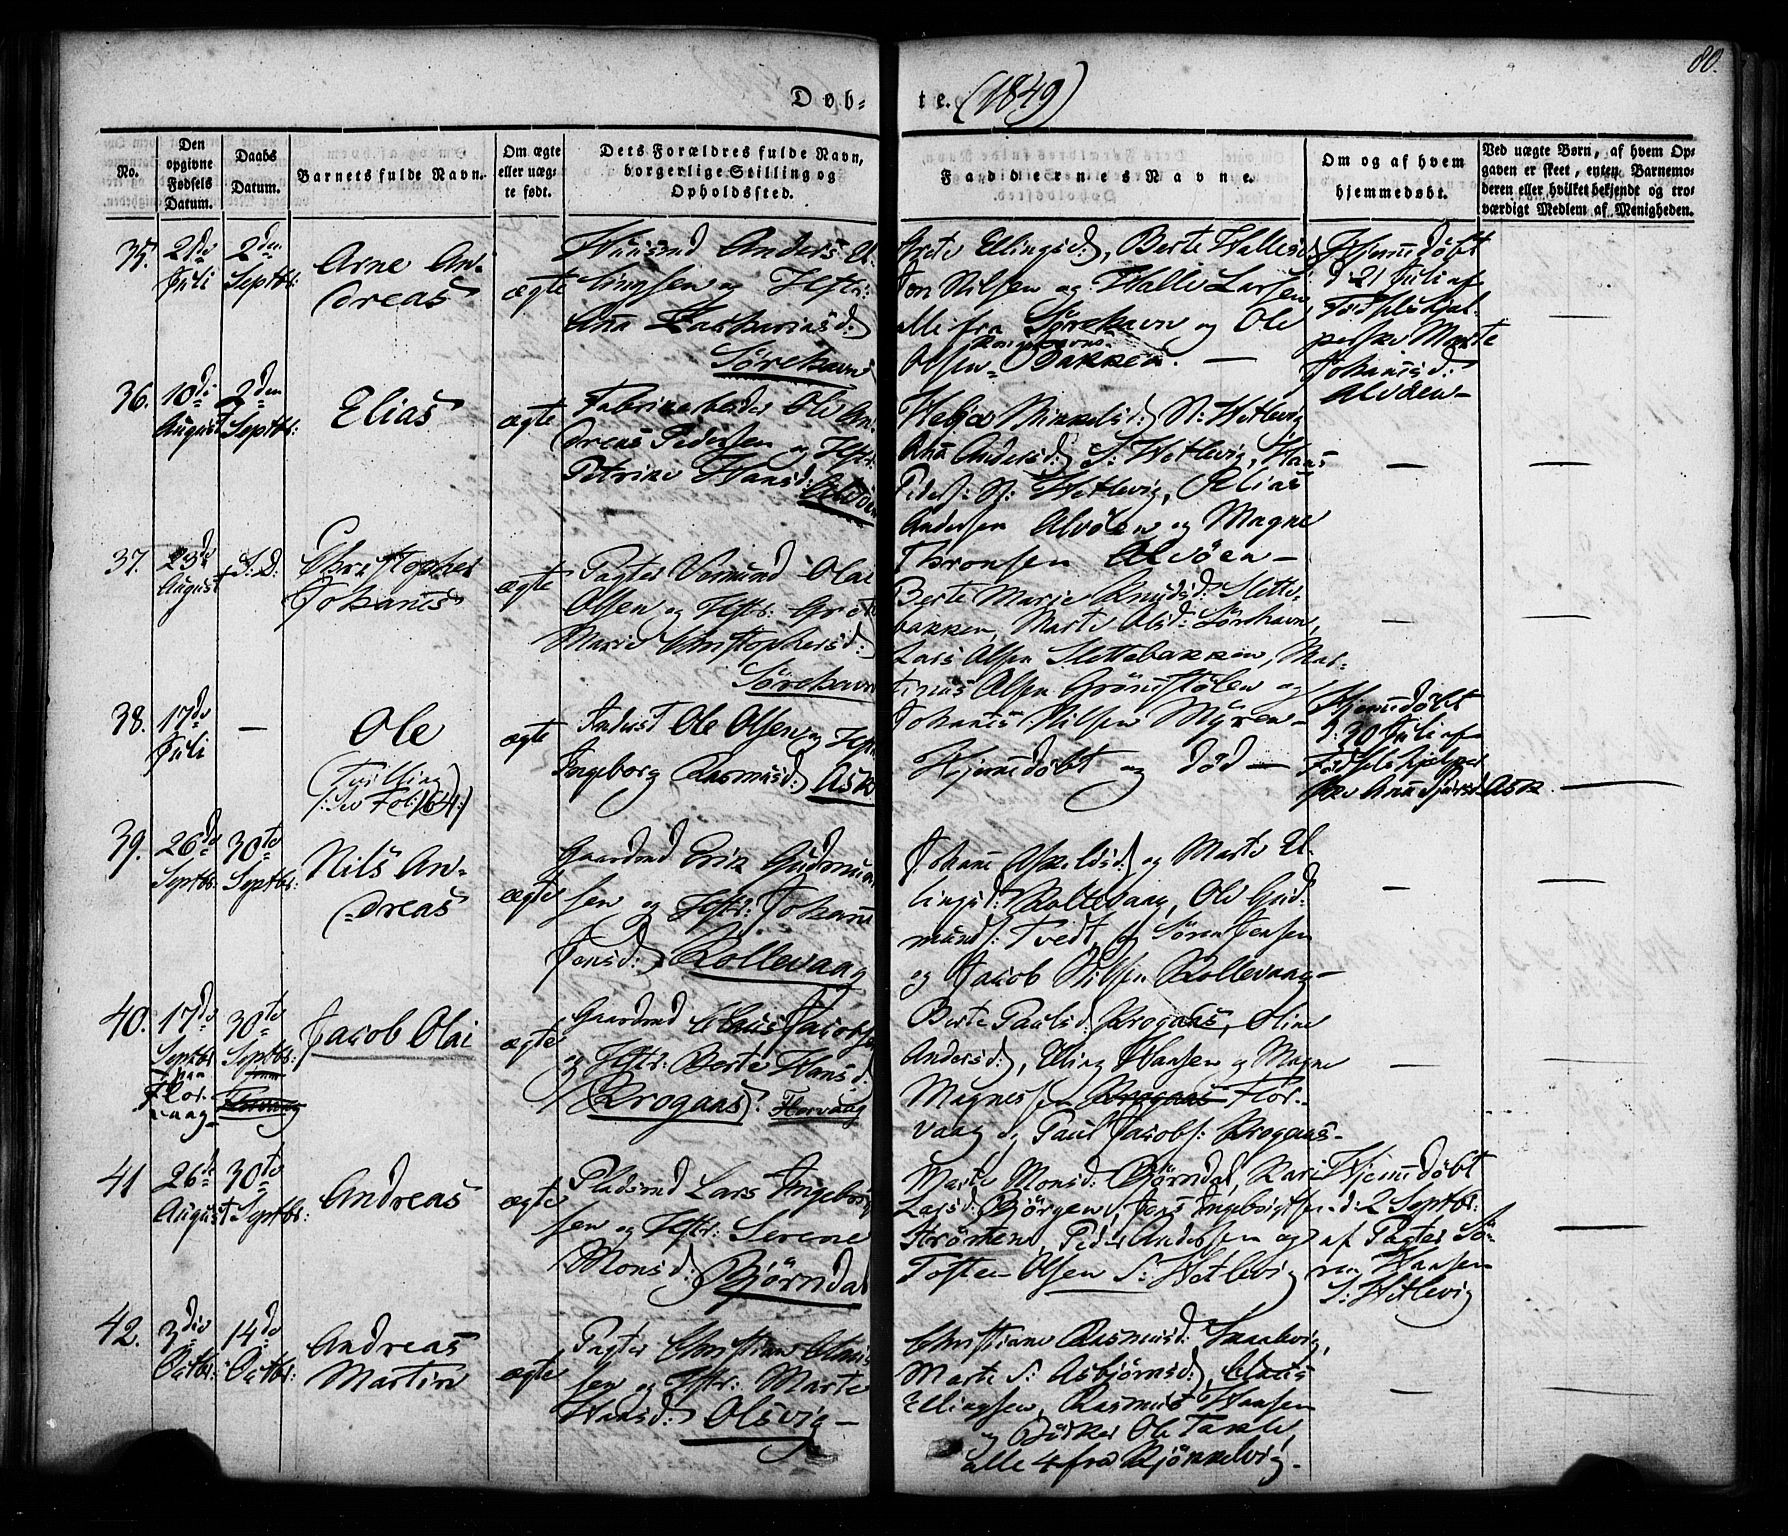 80.
Døb- te. (1849)
No.
Den opgivne Fødsels Datum.
Daabs Datum.
Barnets fulde Navn.
Om ægte eller uægte født.
Dets Forældres fulde Navn, borgerlige Stilling og Opholdssted.
Faddernes Navne.
Om og af hvem hjemmedøbt.
Ved uægte Børn, af hvem Opgaven er skeet, enten Barnemoderen eller hvilket bekjendt og troværdigt Medlem af Menigheden.
35.
21de
Juli
2den
Septbr:
Arne An-
dreas
ægte
Huusmd Anders El-
lingsen og Hstr:
Anna Zachariasd:
Sørehavn
Ellingsd:, Berte Hallesd:
Jon Nilsen og Halle Larsen
alle fra Sørehavn og Ole
Olsen Bakken. —
Hjemmedøbt
d 21 Juli af
Fødselshjæl-
perske Marte
Johannisd:
Alvöen—
—
36.
10de
August
2den
Septbr:
Elias
ægte
Fabrikarbeider Ole An-
dreas Pedersen og Hstr:
Petrine Hansd: Alvöen
Helga Mikkelsd: N: Hetlevig
Anna Andersd: S: Hetlevig, Hans
Peders: N: Hetlevig, Elias
Andersen Alvöen og Magne
Thronsen Alvöen—
—
—
37.
23de
August
S: D:
Christopher
Johannis
ægte
Pagter Vemund Olai
Olsen og Hstr:
Marie Christophersd:
Sørehavn
Berte Marie Knudsd: Slette-
bakken, Marte Olsd: Sørehavn,
Lars Olsen Slettebakken, Mar-
tinus Olsen Grönnestölen og
Johannis Nilsen Myren—
—
—
38.
17de
Juli
—
Ole
(Tvilling
ægte
Inderst Ole Olsen og Hstr:
Ingeborg Rasmusd: Ask
Hjemmedöbt og död—
Hjemmedöbt
d: 30 Juli af
Fødselshjelper-
ske Anna Ask
—
39.
26de
Septbr:
30te
Septbr:
Nils An-
dreas
ægte
Gaardmd Erik Gudmun-
sen og Hstr: Johanne
Jensd: Rollevaag
Johanne og Marte El-
lingsd: Rollevaag, Ole Gud-
munds: Tvedt, og Sören Jensen
og Jacob Nilsen Rollevaag—
—
—
40.
17de
Septbr
Flor-
vaag
30te
Septbr:
Jacob Olai
ægte
Gaardmd Claus Jacobsen
og Hstr: Berte Hansd:
Krogaas: Florvaag
Berte Paulsd: Krogaas, Oline
Andersd:, Elling Hansen og Magne
Magnesen Krogaas Flor-
vaag og Paul Jacobs: Krogaas—
—
—
41
26de
August
30te
Septbr:
Andreas
ægte
Pladsmd Lars Ingebrigt-
sen og Hstr: Serene
Monsd: Björndal
Marte Monsd: Björndal, Kari
Larsd: Björgen, Jens Ingebrigtsen
Strömen, Peder Andersen og
Tosten Olsen S: Hetlevig
Hjemmedöbt
d: 2 Septbr:
af Pagter Sö-
ren Hansen
S: Hetlevig
—
42.
3die
Octbr:
14de
Octbr:
Andreas
Martin
ægte
Pagter Christian Olai-
sen og Hstr: Marte
Hansd: Olsvig—
Christiane Rasmusd:
Marte S: Asbjörnsd:, Claus
Ellingsen, Rasmus Hansen
og Ole
alle 4 fra Bjönkelvig—
—
—